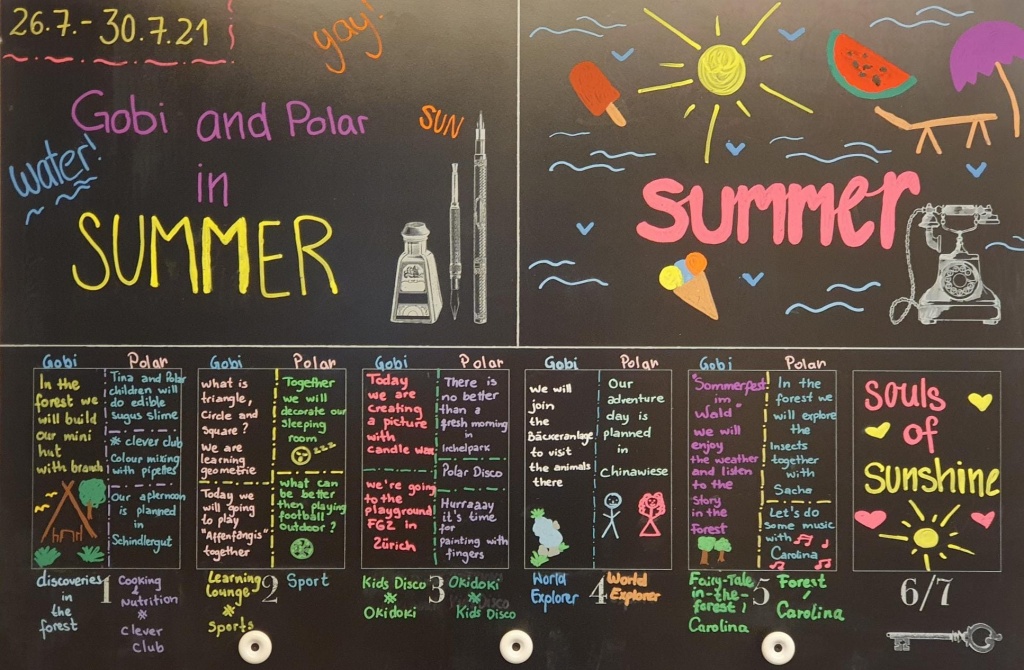 26.7.- 30.7.21
yay!
Gobi and Polar
SUN
water!
in
SUMMER
summer
Gobi
Polar
In the
forest we
will build
our mini
hut
with branch
Tina and Polar
children will
do edible
sugus slime
* clever club
Colour mixing
with pipettes
Our afternoon
is planned
in
Schindlergut
discoveries
in the
forest
1
Cooking
& Nutrition
*
Clever
Club
Gobi
Polar
what is
triangle,
Circle and
Square?
We are
learning
geometrie
Today we
will going
to play
"Affenfangis"
together
Together
we will
decorate our
sleeping
room
zzz
what can
be better
then playing
football
outdoor?
Learning
lounge
*
Sports
2
Sport
Gobi
Polar
Today
we are
creating
a picture
with
candle wax
we're going
to the
playground
FGZ in
Zürich
There is
no better
than a
fresh morning
in
Irchelpark
Polar Disco
Hurraaay
it's time
for
painting with
fingers
Kids Disco
*
Okidoki
3
Okidoki
*
Kids Disco
Gobi
Polar
we will
join
the
Bäckeranlage
to visit
the animals
there
Our
adventure
day is
planned
in
Chinawiese
World
Explorer
4
World
Explorer
Gobi
Polar
"Sommerfest
im
Wald"
we will
enjoy
the weather
and listen
to the
story
in the
forest
In the
forest we
will explore
the
Insects
together
with
Sacha
Let's do
some music
with
Carolina
Fairy-Tale
in-the-
forest /
Carolina
5
Forest
/
Carolina
souls
of
Sunshine
6/7